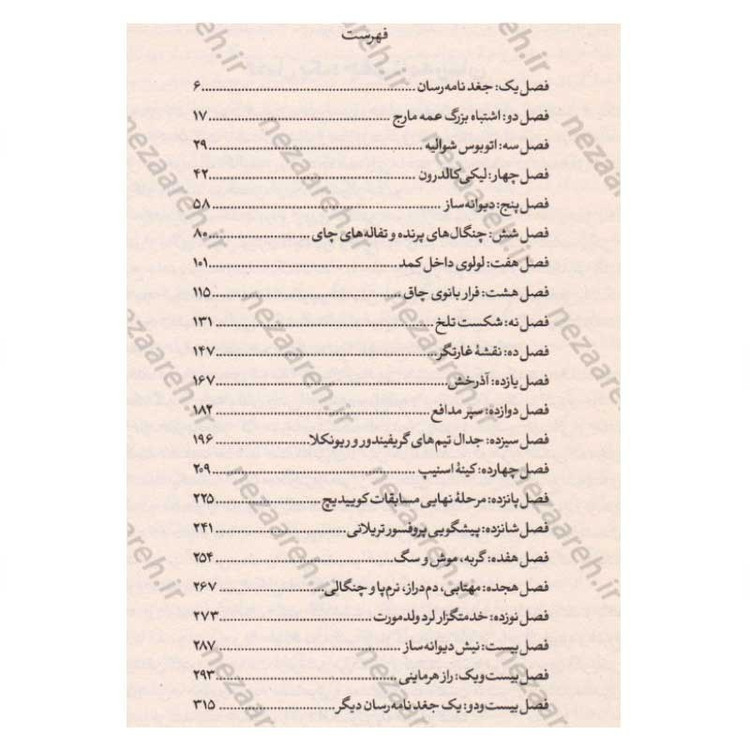 فهرست
فصل یک: جغد نامه‌رسان ..... ۶
فصل دو: اشتباه بزرگ عمه مارج ..... ۱۷
فصل سه: اتوبوس شوالیه ..... ۲۹
فصل چهار: لیکی کالدرون ..... ۴۲
فصل پنج: دیوانه‌ساز ..... ۵۸
فصل شش: چنگال‌های پرنده و تفاله‌های چای ..... ۸۰
فصل هفت: لولوی داخل کمد ..... ۱۰۱
فصل هشت: فرار بانوی چاق ..... ۱۱۵
فصل نه: شکست تلخ ..... ۱۳۱
فصل ده: نقشهٔ غارتگر ..... ۱۴۷
فصل یازده: آذرخش ..... ۱۶۷
فصل دوازده: سپر مدافع ..... ۱۸۲
فصل سیزده: جدال تیم‌های گریفیندور و ریونکلا ..... ۱۹۶
فصل چهارده: کینهٔ اسنیپ ..... ۲۰۹
فصل پانزده: مرحلهٔ نهایی مسابقات کوییدیچ ..... ۲۲۵
فصل شانزده: پیشگویی پروفسور تریلانی ..... ۲۴۱
فصل هفده: گربه، موش و سگ ..... ۲۵۴
فصل هجده: مهتابی، دم‌دراز، نرم‌پا و چنگالی ..... ۲۶۷
فصل نوزده: خدمتگزار لرد ولدمورت ..... ۲۷۳
فصل بیست: نیش دیوانه‌ساز ..... ۲۸۷
فصل بیست‌ویک: راز هرماینی ..... ۲۹۳
فصل بیست‌ودو: یک جغد نامه‌رسان دیگر ..... ۳۱۵
nezaareh.ir